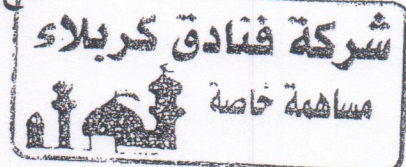 شركة فنادق كربلاء
مساهمة خاصة